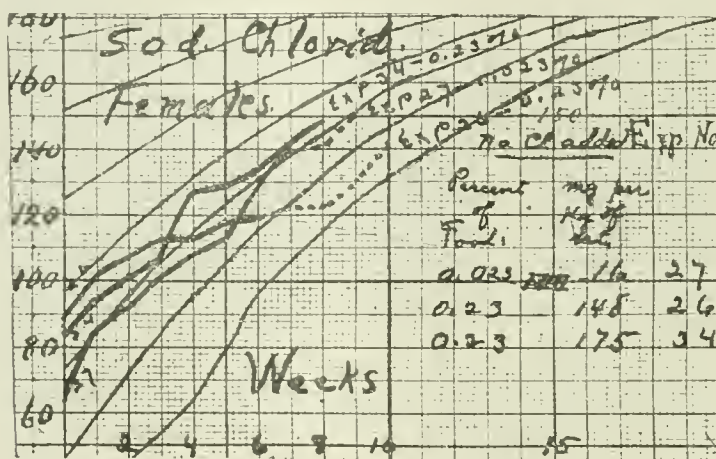 180
Sod. Chlorid.
160
Females.
Exp 34 - 0.23%
Exp 27 - .023%
Exp 26 - 0.23%
150
140
Na Cl added Exp No
Percent of Food.
mg per Kg of
120
100
0.023 16 27
0.23 148 26
0.23 175 34
80
27
Weeks
60
2 4 6 8 10 15